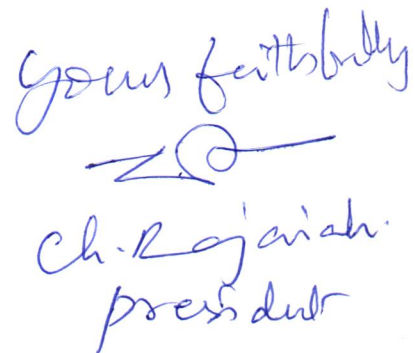 yours faithfully
Ch. Rajaiah.
president